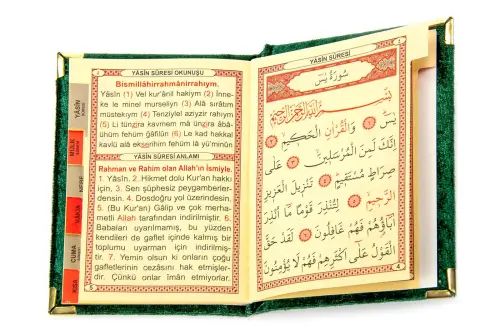 YÂSÎN SÛRESİ OKUNUŞU
Bismillâhirrahmânirrahıym.
Yâsîn (1) Vel kur'ânil hakiym (2) İnne-
ke le minel murseliyn (3) Alâ sırâtım
müstekıym (4) Tenziylel aziyzir rahıym
(5) Li tünzira kavmem mâ ünzira âbâ-
ühüm fehüm ğâfilûn (6) Le kad hakkal
kavlü alâ ekserihim fehüm lâ yü'minûn
YÂSÎN SÛRESİ ANLAMI
Rahman ve Rahim olan Allah'ın İsmiyle.
1. Yâsîn. 2. Hikmet dolu Kur'an hakkı
için, 3. Sen şüphesiz peygamberler-
densin. 4. Dosdoğru yol üzerindesin.
5. (Bu Kur'an) Gâlip ve çok merha-
metli Allah tarafından indirilmiştir. 6.
Babaları uyarılmamış, bu yüzden
kendileri de gaflet içinde kalmış bir
toplumu uyarman için indirilmiş-
tir. 7. Yemin olsun ki onların çoğu
gafletlerinin cezasını hak etmişler-
dir. Çünkü onlar îman etmiyorlar.
5
YÂSÎN
MÜLK
CUMA
YÂSÎN SÛRESİ
سُورَةُ يٰسٓ
بِسْمِ اللّٰهِ الرَّحْمٰنِ الرَّحِيمِ
يٰسٓ ۝ وَالْقُرْاٰنِ الْحَكِيمِ ۝
اِنَّكَ لَمِنَ الْمُرْسَلِينَ ۝ عَلٰى
صِرَاطٍ مُسْتَقِيمٍ ۝ تَنْزِيلَ الْعَزِيزِ
الرَّحِيمِ ۝ لِتُنْذِرَ قَوْمًا مَٓا اُنْذِرَ
اٰبَٓاؤُهُمْ فَهُمْ غَافِلُونَ ۝ لَقَدْ حَقَّ
الْقَوْلُ عَلٰٓى اَكْثَرِهِمْ فَهُمْ لَا يُؤْمِنُونَ
4